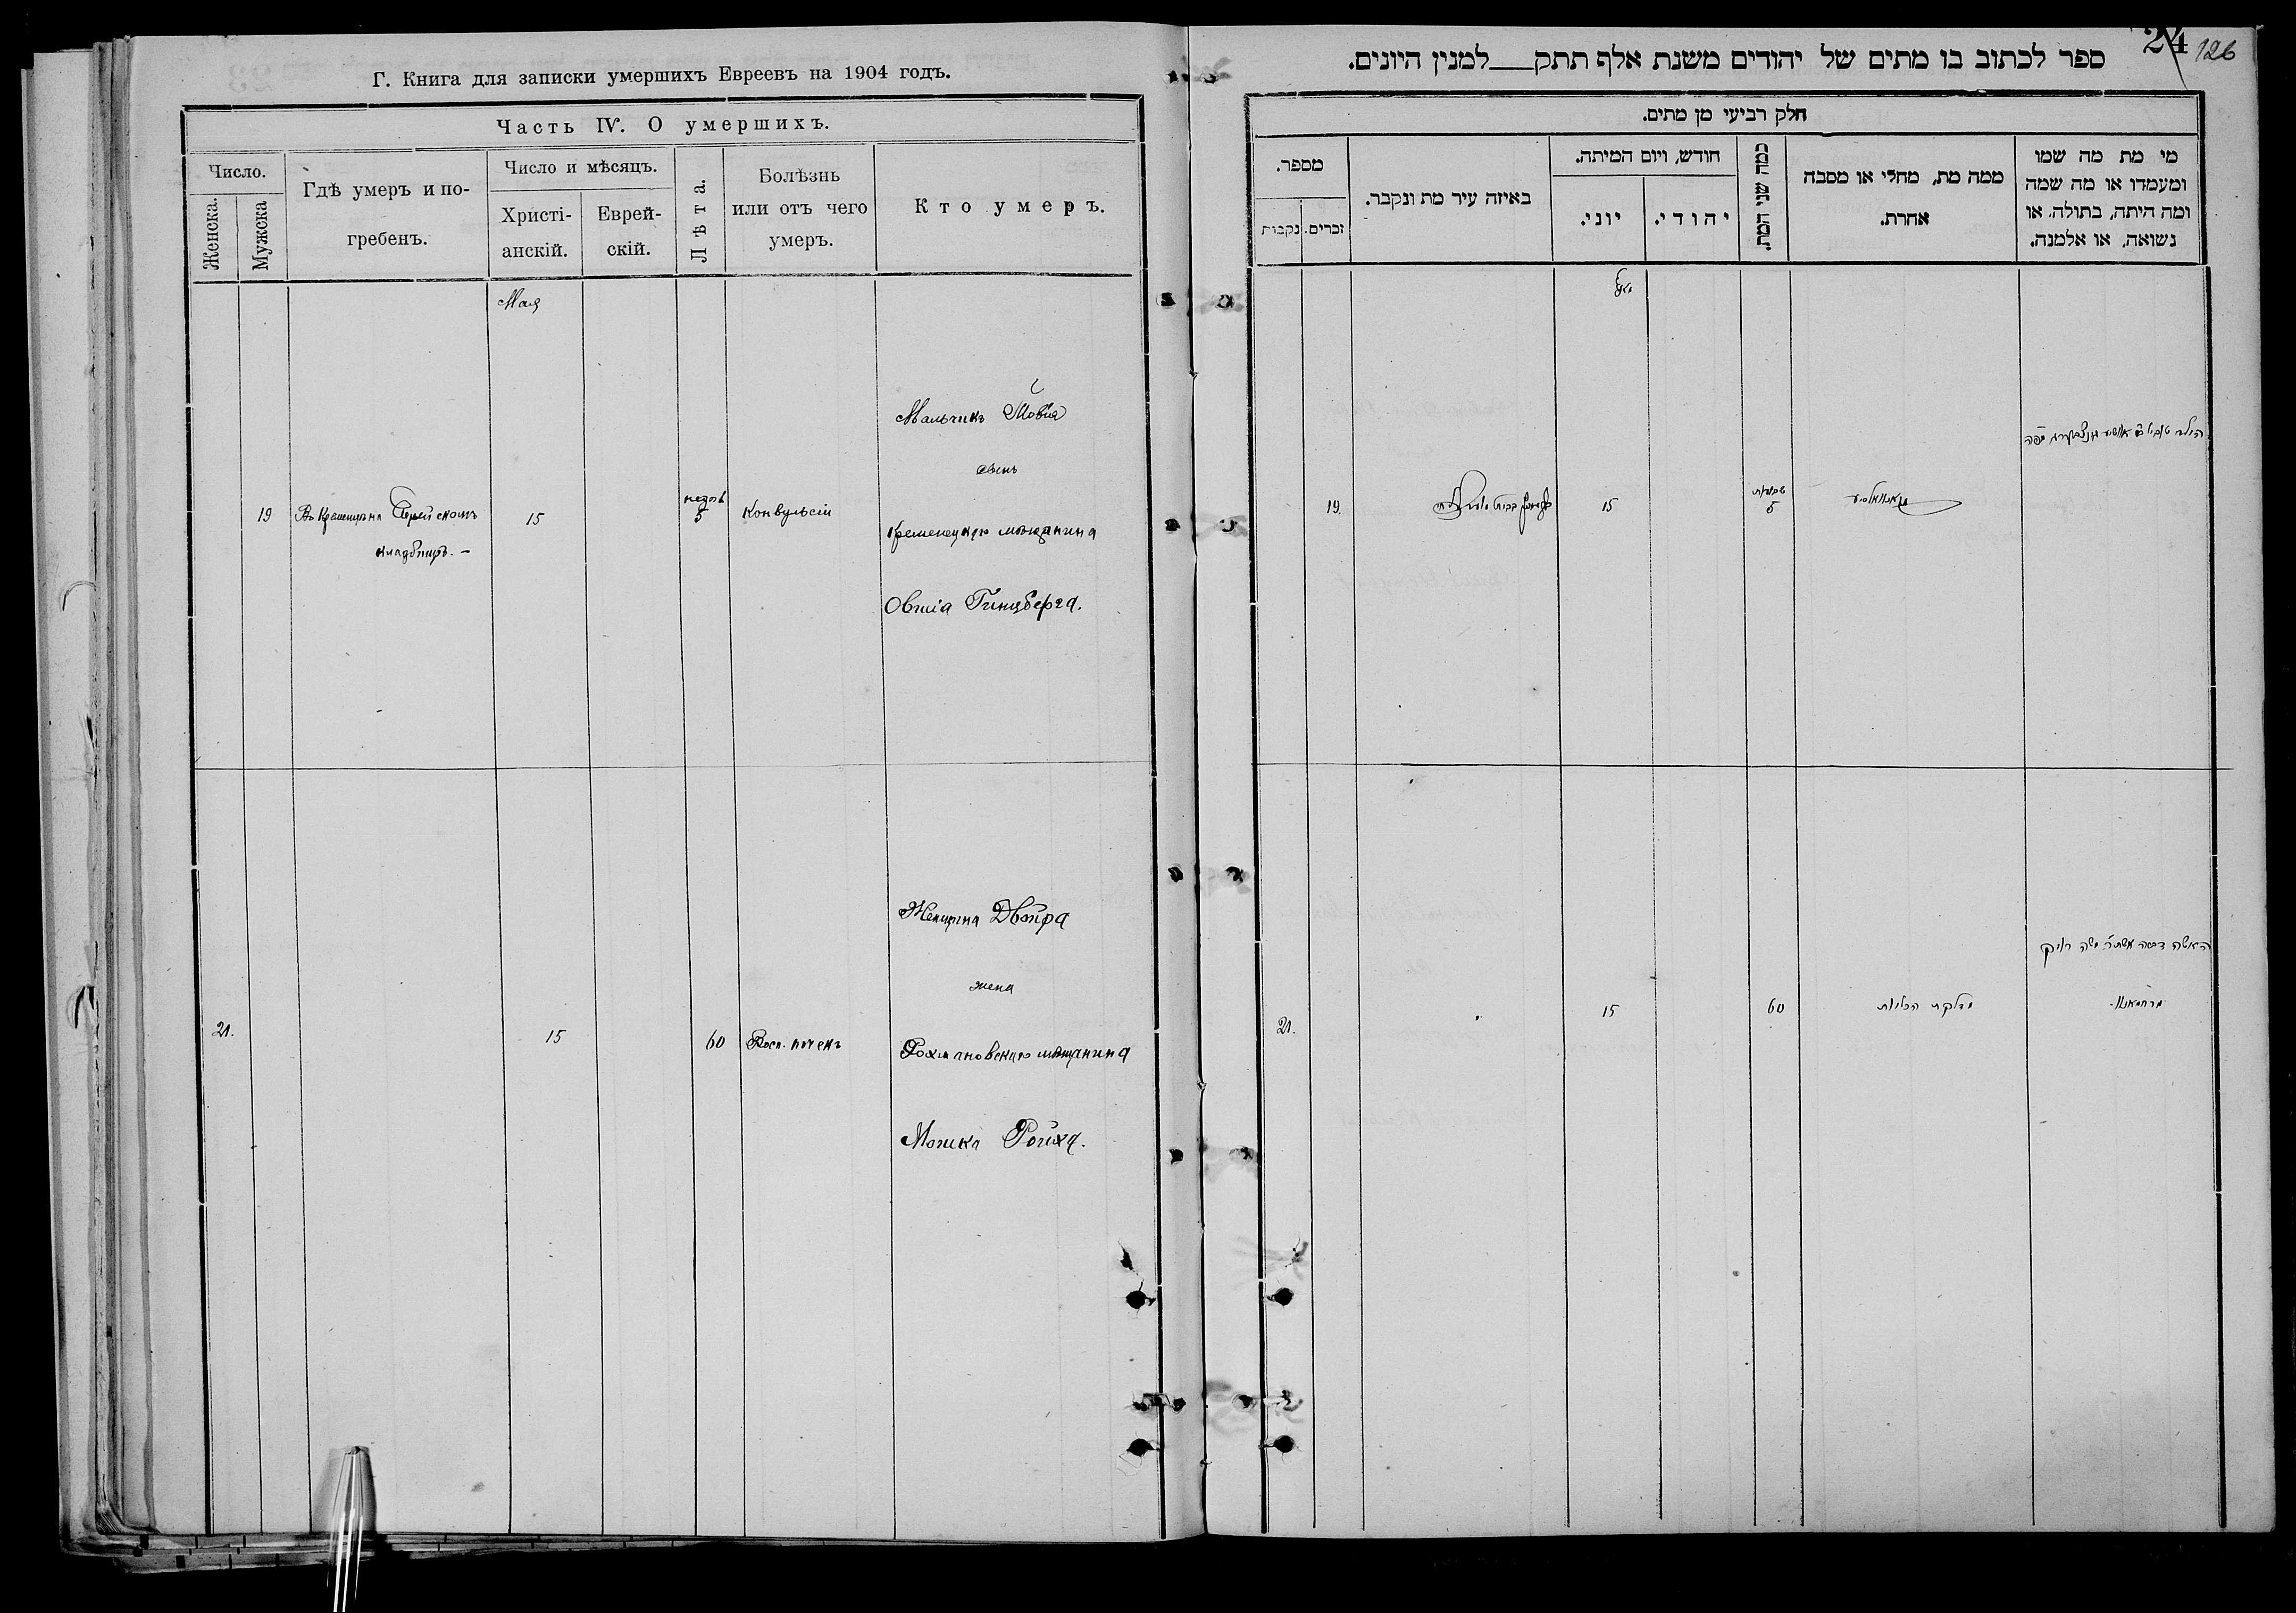 Г. Книга для записки умершихъ Евреевъ на 1904 годъ.
Часть IV. О умершихъ.
Число.
Женска.
Мужска
Гдѣ умеръ и по-
гребенъ.
Число и мѣсяцъ.
Христі-
анскій.
Еврей-
скій.
Лѣта.
Болѣзнь
или отъ чего
умеръ.
Кто умеръ.
Мая
19
Въ Еврейскомъ
кладбищѣ. —
15
5
Конвульсіи
Мальчикъ Товія
сынъ
Кременецкаго мѣщанина
Овшія Гинцберга.
21.
15
60
Восп. почекъ
Женщина Двойра
жена
Рохмановскаго мѣщанина
Мошка Ройха.
24
126
ספר לכתוב בו מתים של יהודים משנת אלף תתק למנין היונים.
חלק רביעי מן מתים.
מספר.
נקבות
זכרים.
באיזה עיר מת ונקבר.
חודש, ויום המיתה.
יוני.
יהודי.
כמה שני המת.
ממה מת, מחלי או מסבה
אחרת.
מי מת מה שמו
ומעמדו או מה שמה
ומה היתה, בתולה, או
נשואה, או אלמנה.
19.
15
5
הילד
21.
"
15
60
דלקת הכליות
האשה